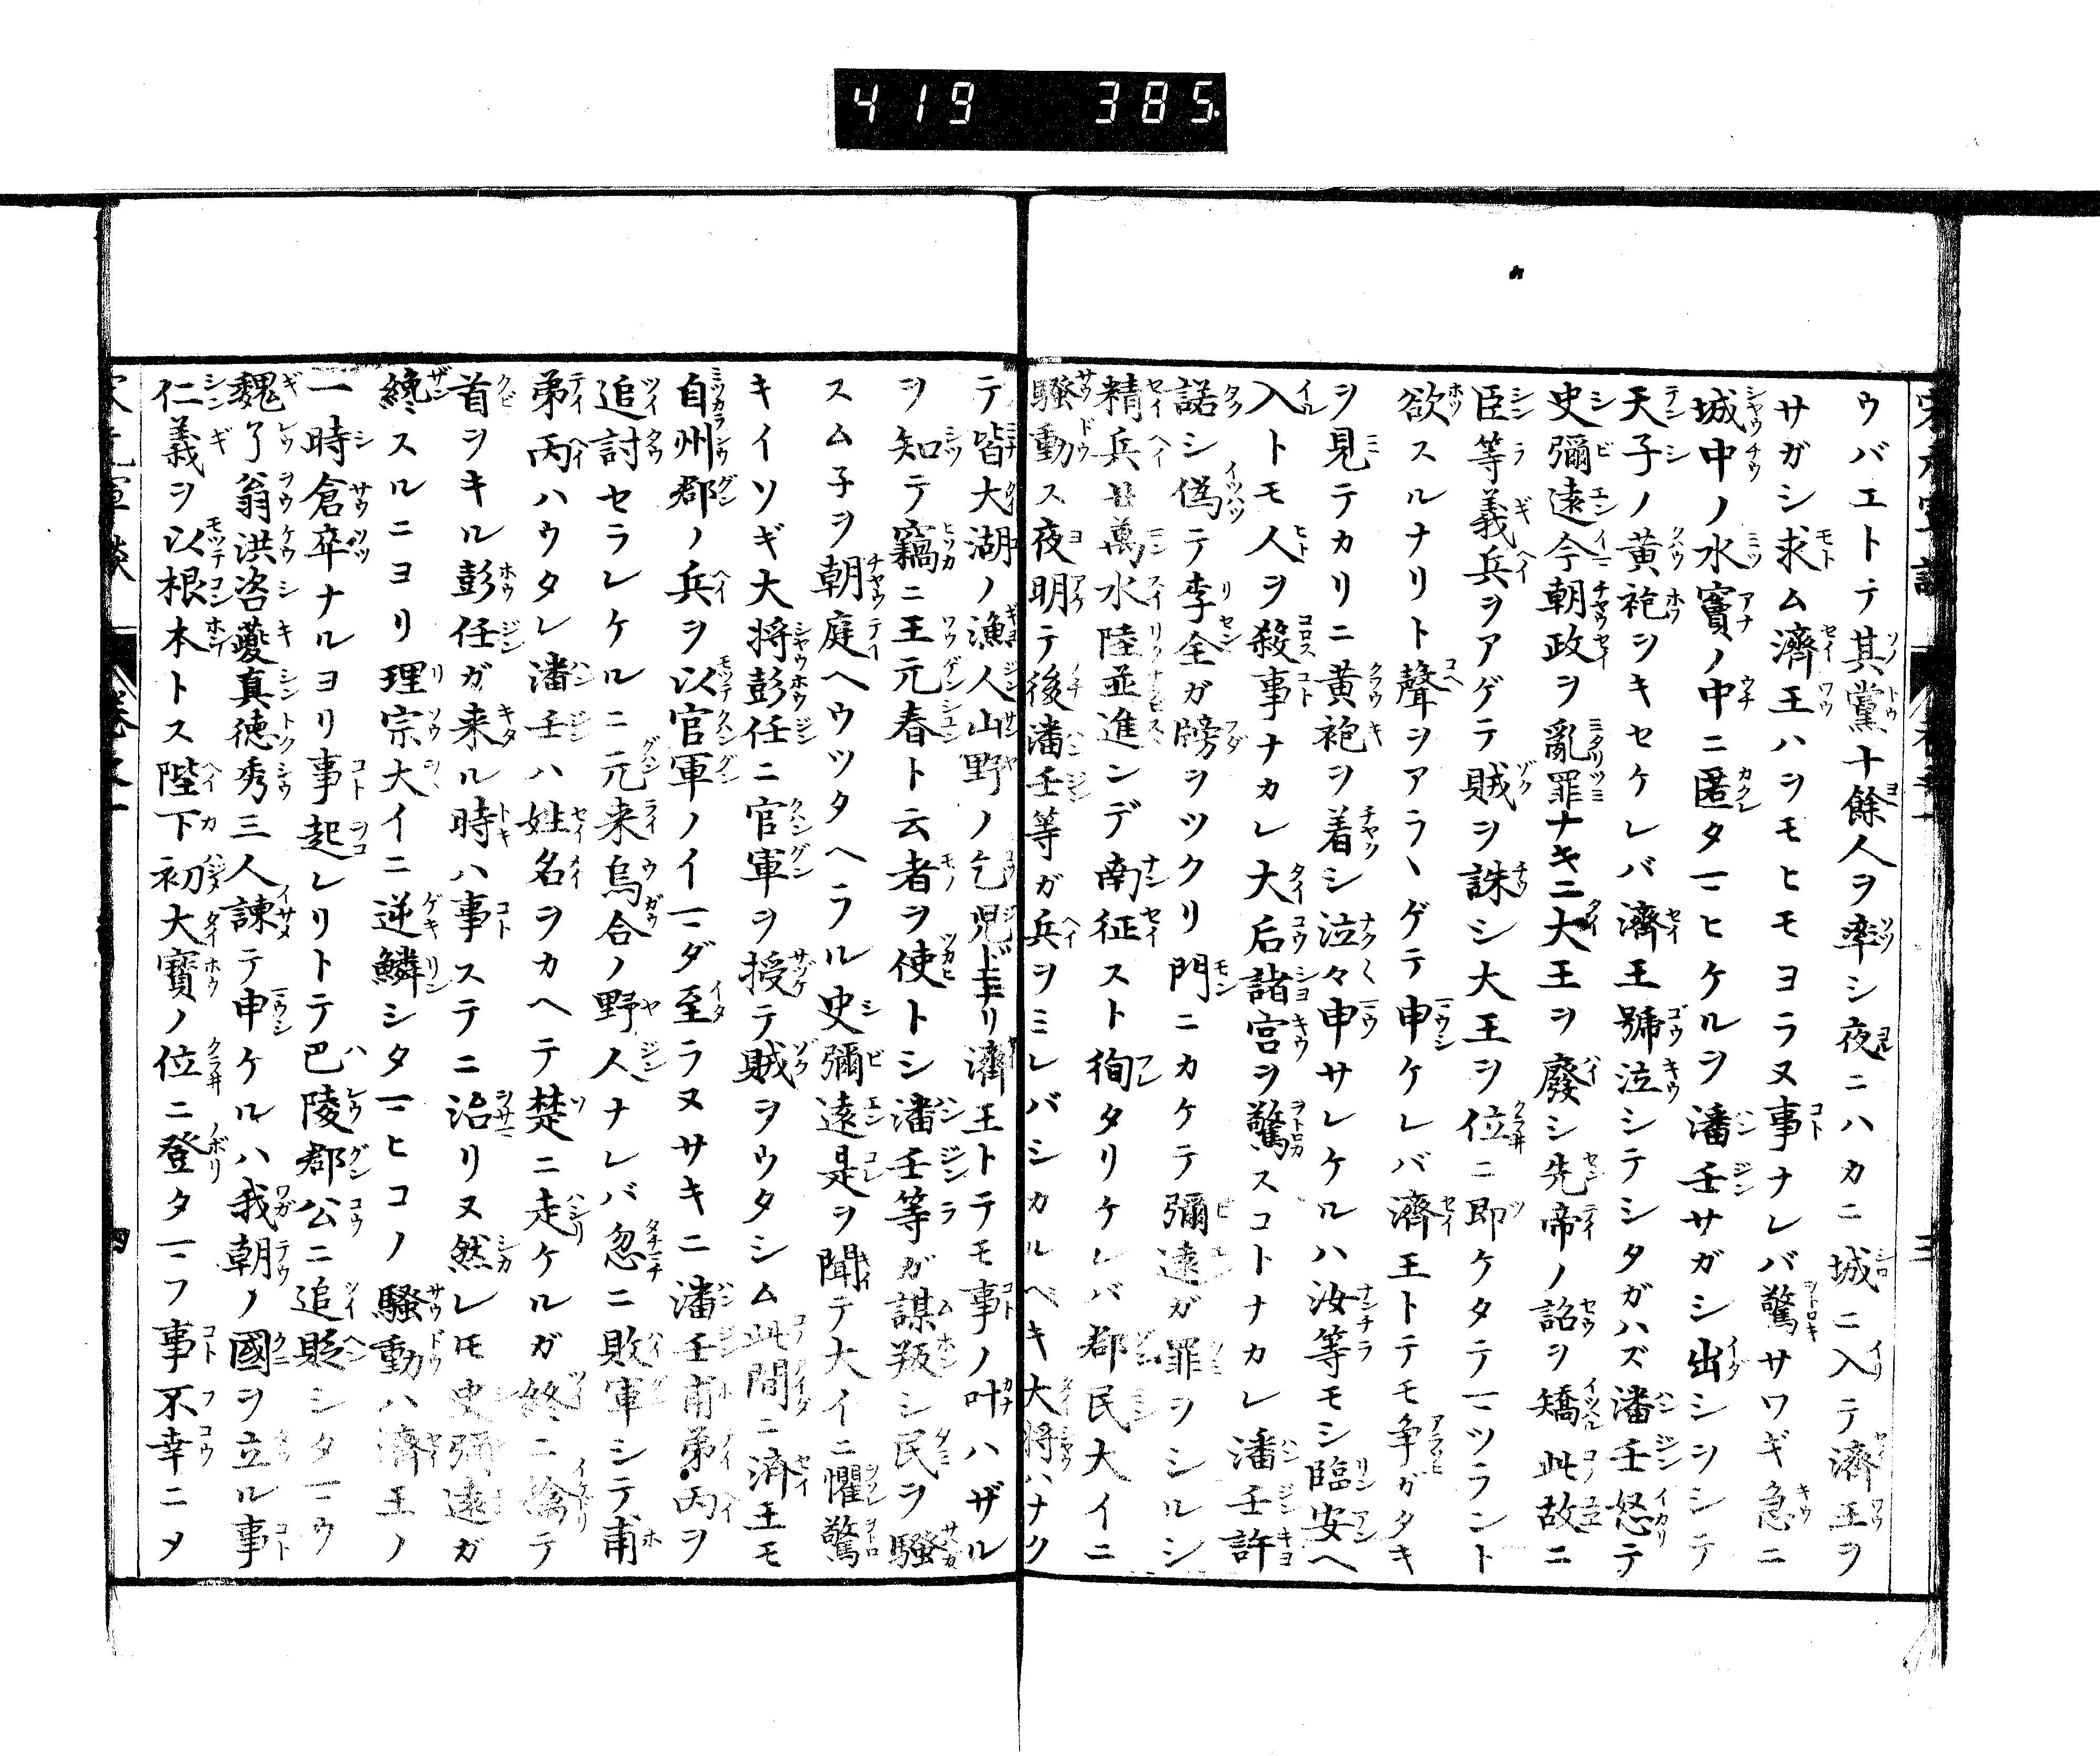 419 385.
ウバエトテ其黨十餘人ヲ率シ夜ニハカニ城ニ入テ濟王ヲ
サガシ求ム濟王ハヲモヒモヨラヌ事ナレバ驚サワギ急ニ
城中ノ水竇ノ中ニ匿タマヒケルヲ潘壬サガシ出シシシテ
天子ノ黄袍ヲキセケレバ濟王號泣シテシタガハズ潘壬怒テ
史彌遠今朝政ヲ亂罪ナキニ大王ヲ廢シ先帝ノ詔ヲ矯此故ニ
臣等義兵ヲアゲテ賊ヲ誅シ大王ヲ位ニ即ケタテマツラント
欲スルナリト聲ヲアラヽゲテ申ケレバ濟王トテモ争ガタキ
ヲ見テカリニ黄袍ヲ着シ泣々申サレケルハ汝等モシ臨安ヘ
入トモ人ヲ殺事ナカレ大后諸宮ヲ驚スコトナカレ潘壬許
諾シ偽テ李全ガ牓ヲツクリ門ニカケテ彌遠ガ罪ヲシルシ
精兵廿萬水陸並進ンデ南征スト徇タリケレバ郡民大イニ
騒動ス夜明テ後潘壬等ガ兵ヲミレバシカルベキ大将ハナク
テ皆大湖ノ漁人山野ノ乞児ドモナリ濟王トテモ事ノ叶ハザル
ヲ知テ竊ニ王元春ト云者ヲ使トシ潘壬等ガ謀叛シ民ヲ騒
スム子ヲ朝庭ヘウツタヘラル史彌遠是ヲ聞テ大イニ懼驚
キイソギ大将彭任ニ官軍ヲ授テ賊ヲウタシム此間ニ濟王モ
自州郡ノ兵ヲ以官軍ノイマダ至ラヌサキニ潘壬甫弟丙ヲ
追討セラレケルニ元来烏合ノ野人ナレバ忽ニ敗軍シテ甫
弟丙ハウタレ潘壬ハ姓名ヲカヘテ楚ニ走ケルガ終ニ擒テ
首ヲキル彭任ガ来ル時ハ事ステニ治リヌ然レモ史彌遠ガ
纔スルニヨリ理宗大イニ逆鱗シタマヒコノ騒動ハ濟王ノ
一時倉卒ナルヨリ事起レリトテ巴陵郡公ニ追貶シタマウ
魏了翁洪咨夔真徳秀三人諫テ申ケルハ我朝ノ國ヲ立ル事
仁義ヲ以根本トス陛下初大寳ノ位ニ登タマフ事不幸ニメ
四